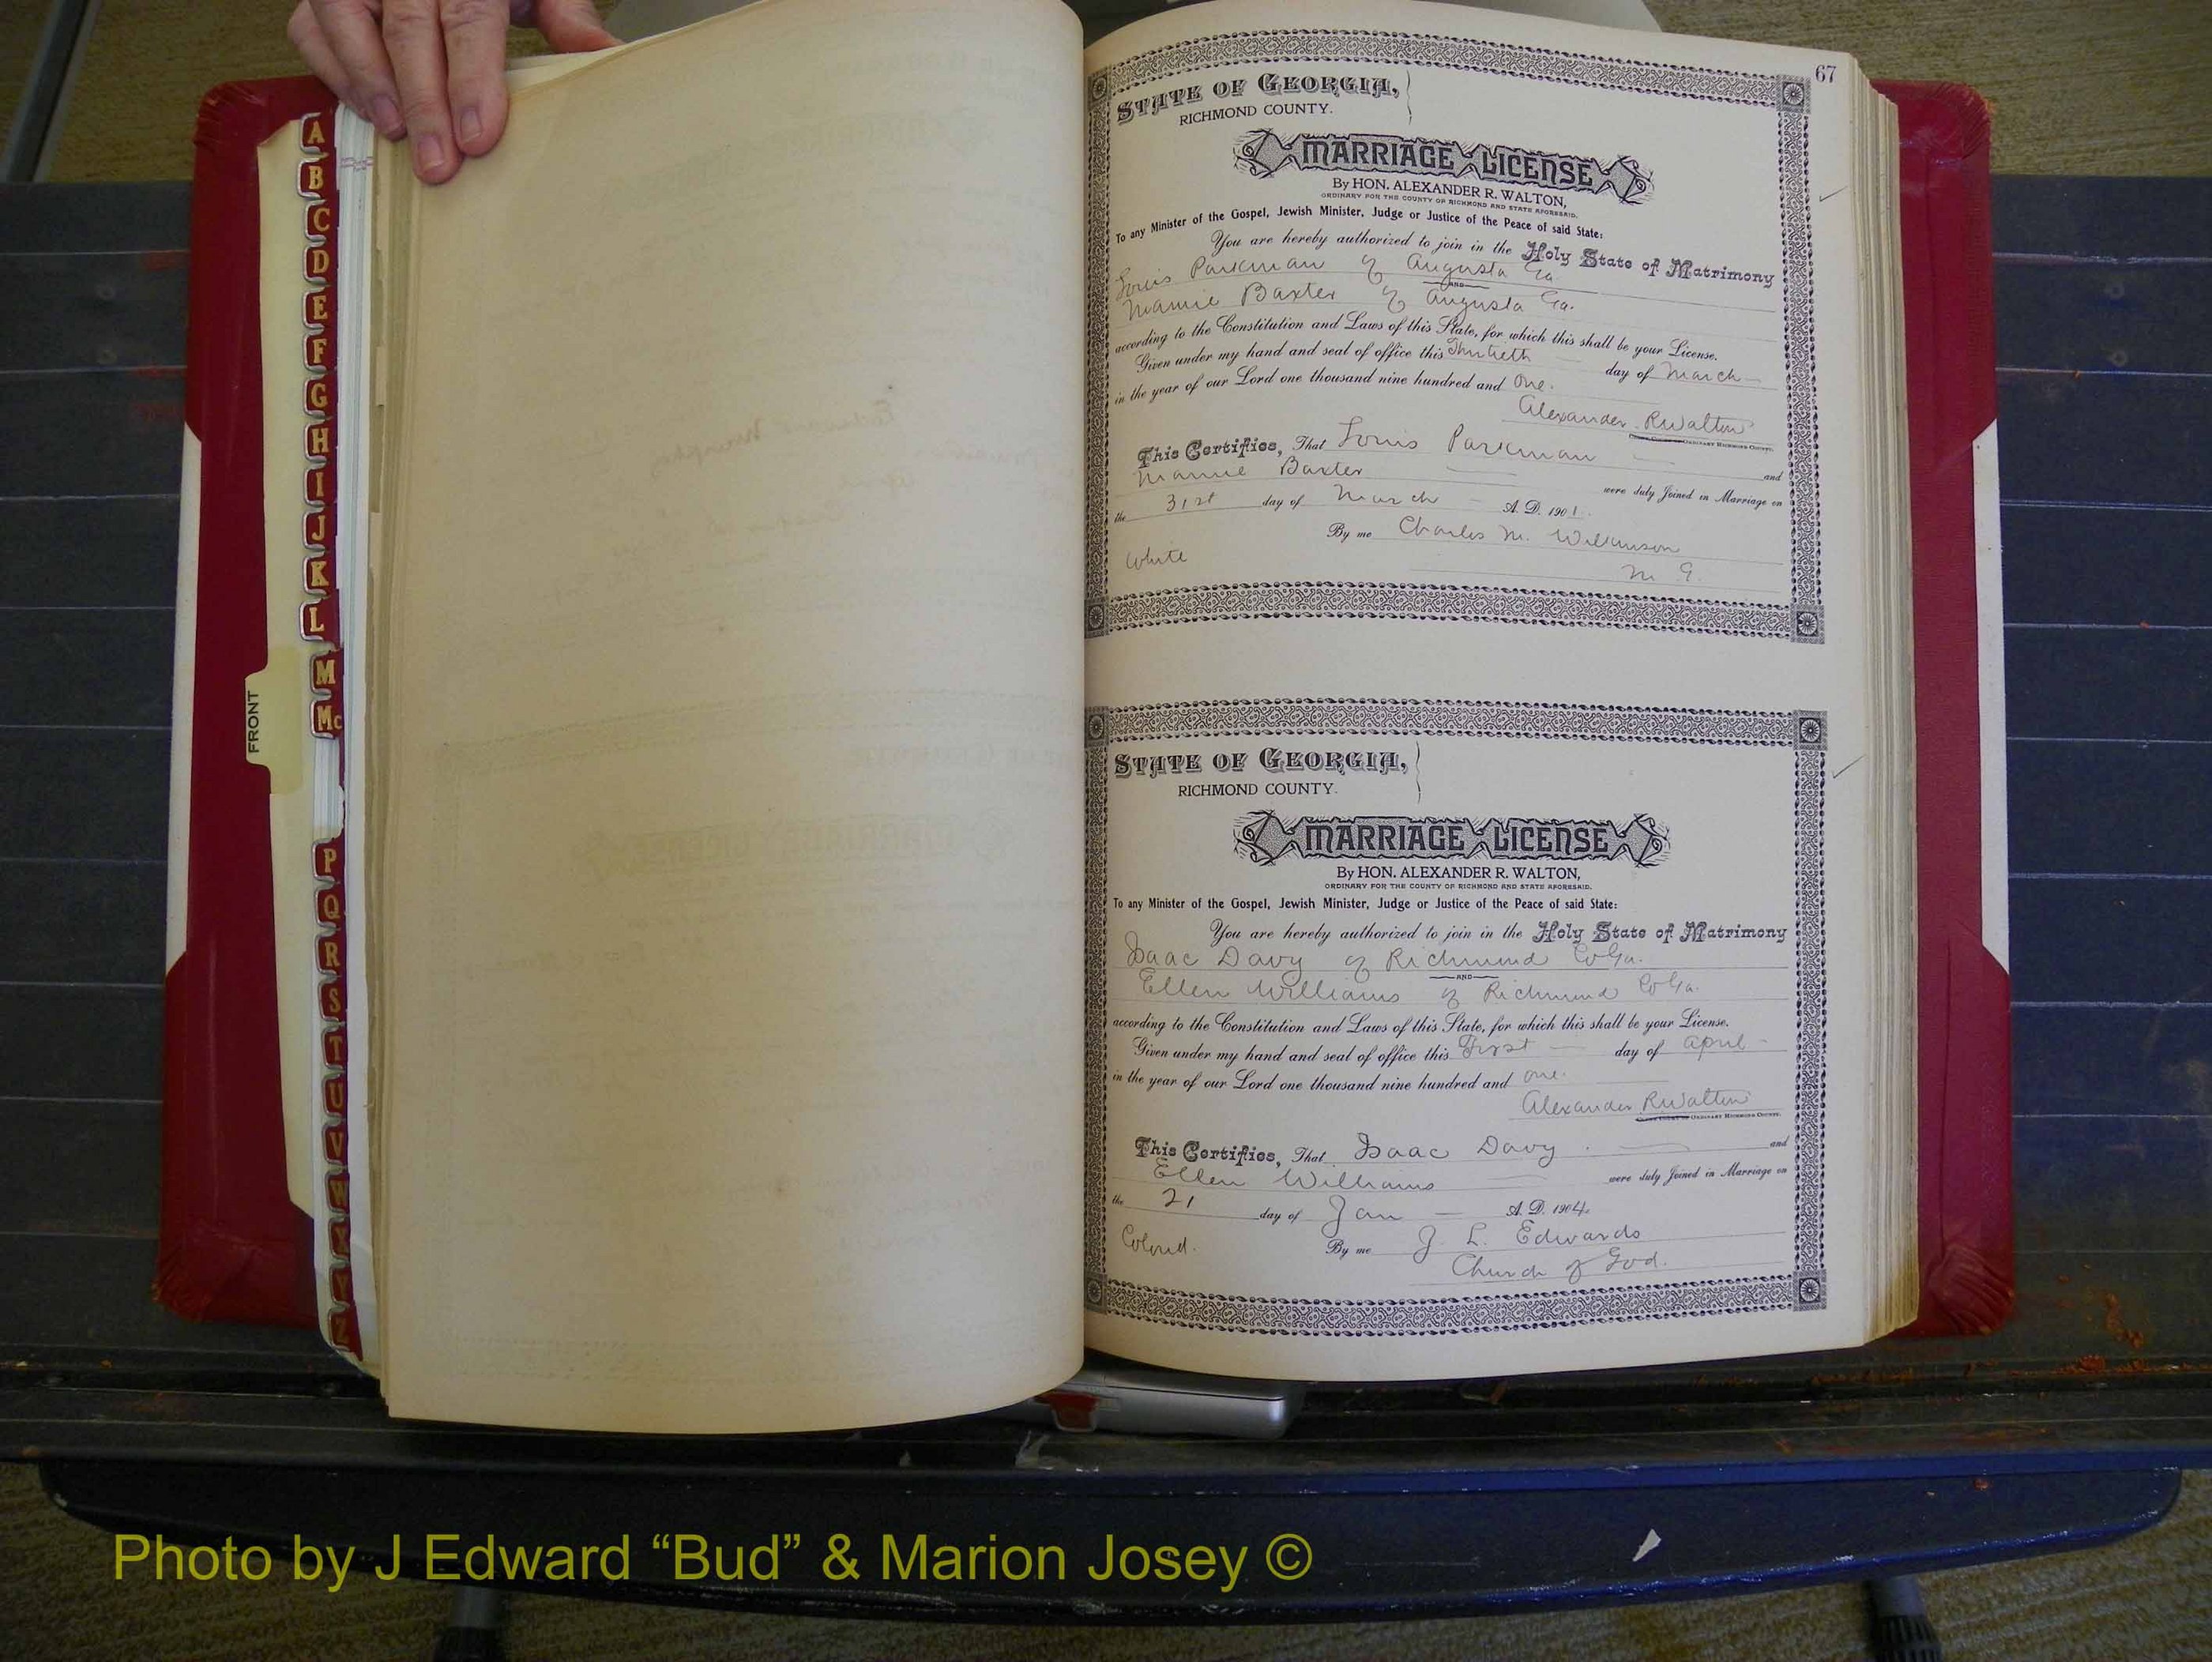 A
B
C
D
E
F
G
H
I
J
K
L
M
Mc
P
Q
R
S
T
U
V
W
X
Y
Z
FRONT
67
STATE OF GEORGIA,
RICHMOND COUNTY.
MARRIAGE LICENSE
By HON. ALEXANDER R. WALTON,
ORDINARY FOR THE COUNTY OF RICHMOND AND STATE AFORESAID.
To any Minister of the Gospel, Jewish Minister, Judge or Justice of the Peace of said State:
You are hereby authorized to join in the Holy State of Matrimony
Louis Parkman of Augusta Ga
AND
Mamie Baxter of Augusta Ga.
according to the Constitution and Laws of this State, for which this shall be your License.
Given under my hand and seal of office this Thirtieth day of March
in the year of our Lord one thousand nine hundred and One.
Alexander R Walton
ORDINARY RICHMOND COUNTY.
This Certifies, That Louis Parkman and
Mamie Baxter were duly Joined in Marriage on
the 31st day of March A. D. 1901.
By me Charles M. Wilkinson
White
M G.
STATE OF GEORGIA,
RICHMOND COUNTY.
MARRIAGE LICENSE
By HON. ALEXANDER R. WALTON,
ORDINARY FOR THE COUNTY OF RICHMOND AND STATE AFORESAID.
To any Minister of the Gospel, Jewish Minister, Judge or Justice of the Peace of said State:
You are hereby authorized to join in the Holy State of Matrimony
Isaac Davy of Richmond Co Ga.
AND
Ellen Williams of Richmond Co Ga.
according to the Constitution and Laws of this State, for which this shall be your License.
Given under my hand and seal of office this First day of April
in the year of our Lord one thousand nine hundred and one.
Alexander R Walton
ORDINARY RICHMOND COUNTY.
This Certifies, That Isaac Davy and
Ellen Williams were duly Joined in Marriage on
the 21 day of Jan A. D. 1904.
Colored. By me J. L. Edwards
Church of God.
Photo by J Edward “Bud” & Marion Josey ©